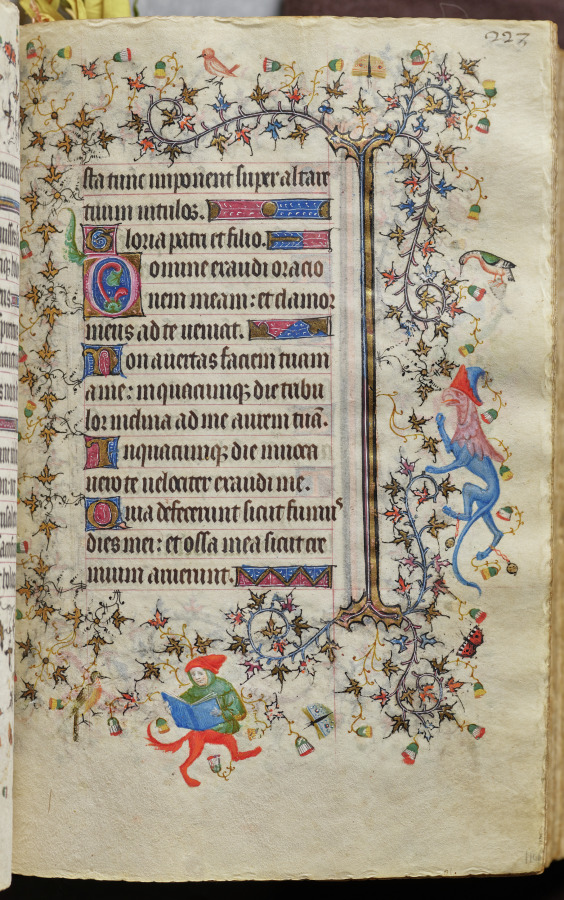 227
sta tunc imponent super altare
tuum vitulos.
Gloria patri et filio.
Domine exaudi oracio
nem meam: et clamor
meus ad te veniat.
Non avertas faciem tuam
a me: in quacumqꝫ die tribu
lor inclina ad me aurem tuā.
In quacumqꝫ die invoca
vero te velociter exaudi me.
Quia defecerunt sicut fumus
dies mei: et ossa mea sicut cre
mium aruerunt.